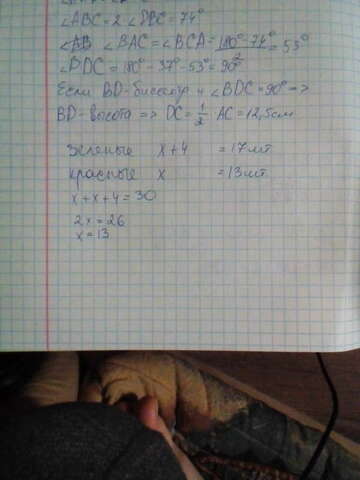 ∠ABC = 2 ∠DBC = 74°
∠AB ∠BAC = ∠BCA = (180° - 74°)/2 = 53°
∠BDC = 180° - 37° - 53° = 90°
Если BD - биссектр и ∠BDC = 90° =>
BD - высота => DC = 1/2 AC = 12,5см
зеленые x + 4 = 17шт
красные x = 13шт
x + x + 4 = 30
2x = 26
x = 13